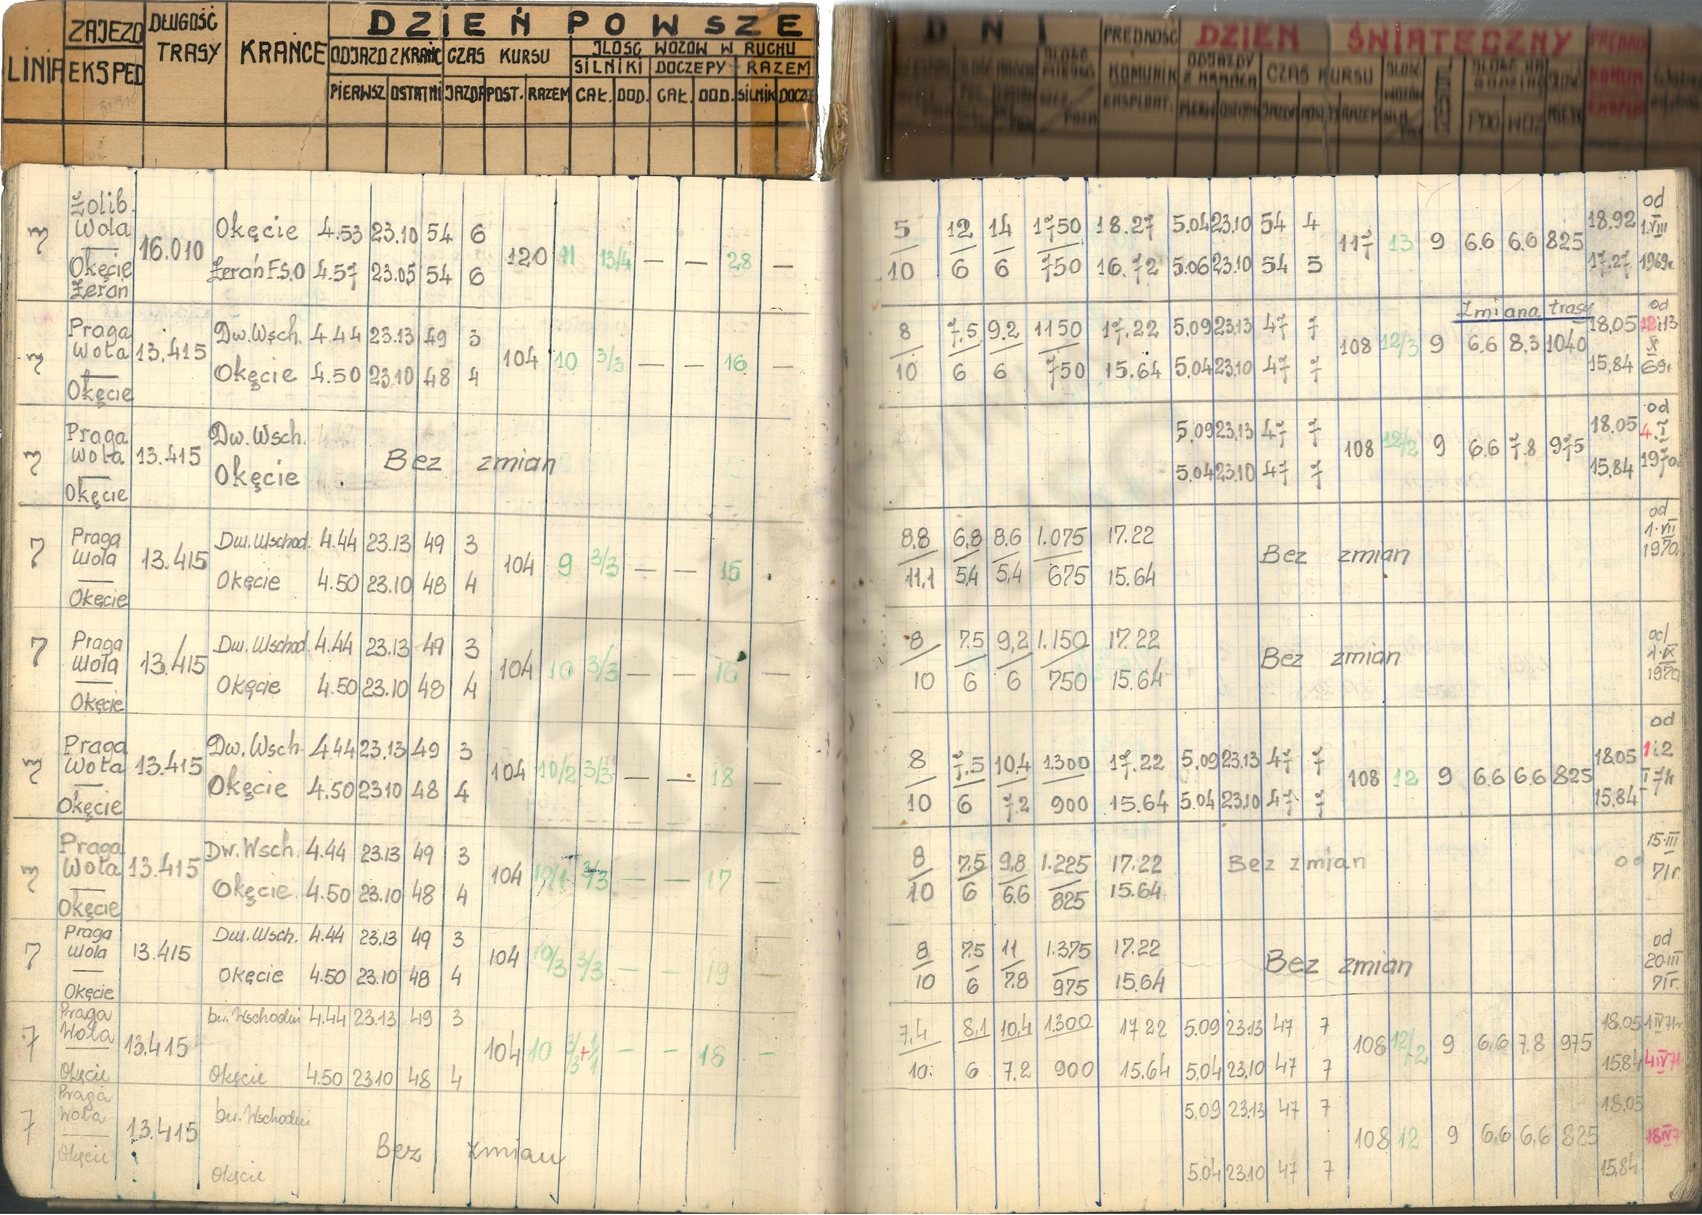 LINIA ZAJEZD EKSPED DŁUGOŚĆ TRASY KRAŃCE
DZIEŃ POWSZE
ODJAZD Z KRAŃC CZAS KURSU ILOŚĆ WOZÓW W RUCHU
SILNIKI DOCZEPY RAZEM
PIERWSZ. OSTATNI JAZDA POST. RAZEM CAŁ. DOD. CAŁ. DOD. SILNIK DOCZE
DNI PRĘDKOŚĆ KOMUNIK EKSPLOAT. DZIEŃ ŚWIĄTECZNY
ODJAZDY Z KRAŃCA CZAS KURSU
7 Żolib. Wola Okęcie Żerań 16.010
Okęcie 4.53 23.10 54 6
Żerań F.S.O 4.57 23.05 54 6
120 11 13/4 — — 28 —
5 12 14 1750 18.27 5.04 23.10 54 4
10 6 6 750 16.72 5.06 23.10 54 5
117 13 9 6.6 6.6 825 18.92 17.27 od 1.VIII 1969r.
7 Praga Wola Okęcie 13.415
Dw. Wsch. 4.44 23.13 49 3
Okęcie 4.50 23.10 48 4
104 10 3/3 — — 16 —
Zmiana trasy
8 7.5 9.2 1150 17.22 5.09 23.13 47 7
10 6 6 750 15.64 5.04 23.10 47 7
108 12/3 9 6.6 8.3 1040 18,05 15,84 od 12i13 X 69r.
7 Praga Wola Okęcie 13.415
Dw. Wsch.
Okęcie
Bez zmian
5.09 23.13 47 7
5.04 23.10 47 7
108 12/2 9 6.6 7.8 975 18.05 15,84 od 4.I 1970r.
7 Praga Wola Okęcie 13.415
Dw. Wschod. 4.44 23.13 49 3
Okęcie 4.50 23.10 48 4
104 9 3/3 — — 15
8,8 6,8 8,6 1.075 17.22
11,1 5,4 5,4 675 15.64
Bez zmian
od 1.VII 1970
7 Praga Wola Okęcie 13.415
Dw. Wschod 4.44 23.13 49 3
Okęcie 4.50 23.10 48 4
104 10 3/3 — — 16 —
8 7.5 9,2 1.150 17.22
10 6 6 750 15.64
Bez zmian
od 1.IX 1970
7 Praga Wola Okęcie 13.415
Dw. Wsch. 4.44 23.13 49 3
Okęcie 4.50 23.10 48 4
104 10/2 3/3 — — 18 —
8 7.5 10,4 1.300 17.22 5.09 23.13 47 7
10 6 7.2 900 15.64 5.04 23.10 47 7
108 12 9 6.6 6.6 825 18.05 15.84 od 1i2 I 71r
7 Praga Wola Okęcie 13.415
Dw. Wsch. 4.44 23.13 49 3
Okęcie 4.50 23.10 48 4
104 10/1 3/3 — — 17 —
8 7.5 9,8 1.225 17.22
10 6 6.6 825 15.64
Bez zmian
od 15.III 71r.
7 Praga Wola Okęcie 13.415
Dw. Wsch. 4.44 23.13 49 3
Okęcie 4.50 23.10 48 4
104 10/3 3/3 — — 19 —
8 7.5 11 1.375 17.22
10 6 7.8 975 15.64
Bez zmian
od 20.III 71r.
7 Praga Wola Okęcie 13.415
Dw. Wschodni 4.44 23.13 49 3
Okęcie 4.50 23.10 48 4
104 10 3/3+1/1 — — 18 —
7,4 8,1 10,4 1.300 17.22 5.09 23.13 47 7
10 6 7.2 900 15.64 5.04 23.10 47 7
108 12/2 9 6,6 7.8 975 18.05 15.84 1 IV 71r 4 IV 71
7 Praga Wola Okęcie 13.415
Dw. Wschodni
Okęcie
Bez zmian
5.09 23.13 47 7
5.04 23.10 47 7
108 12 9 6,6 6,6 825 18.05 15,84 18 IV 7